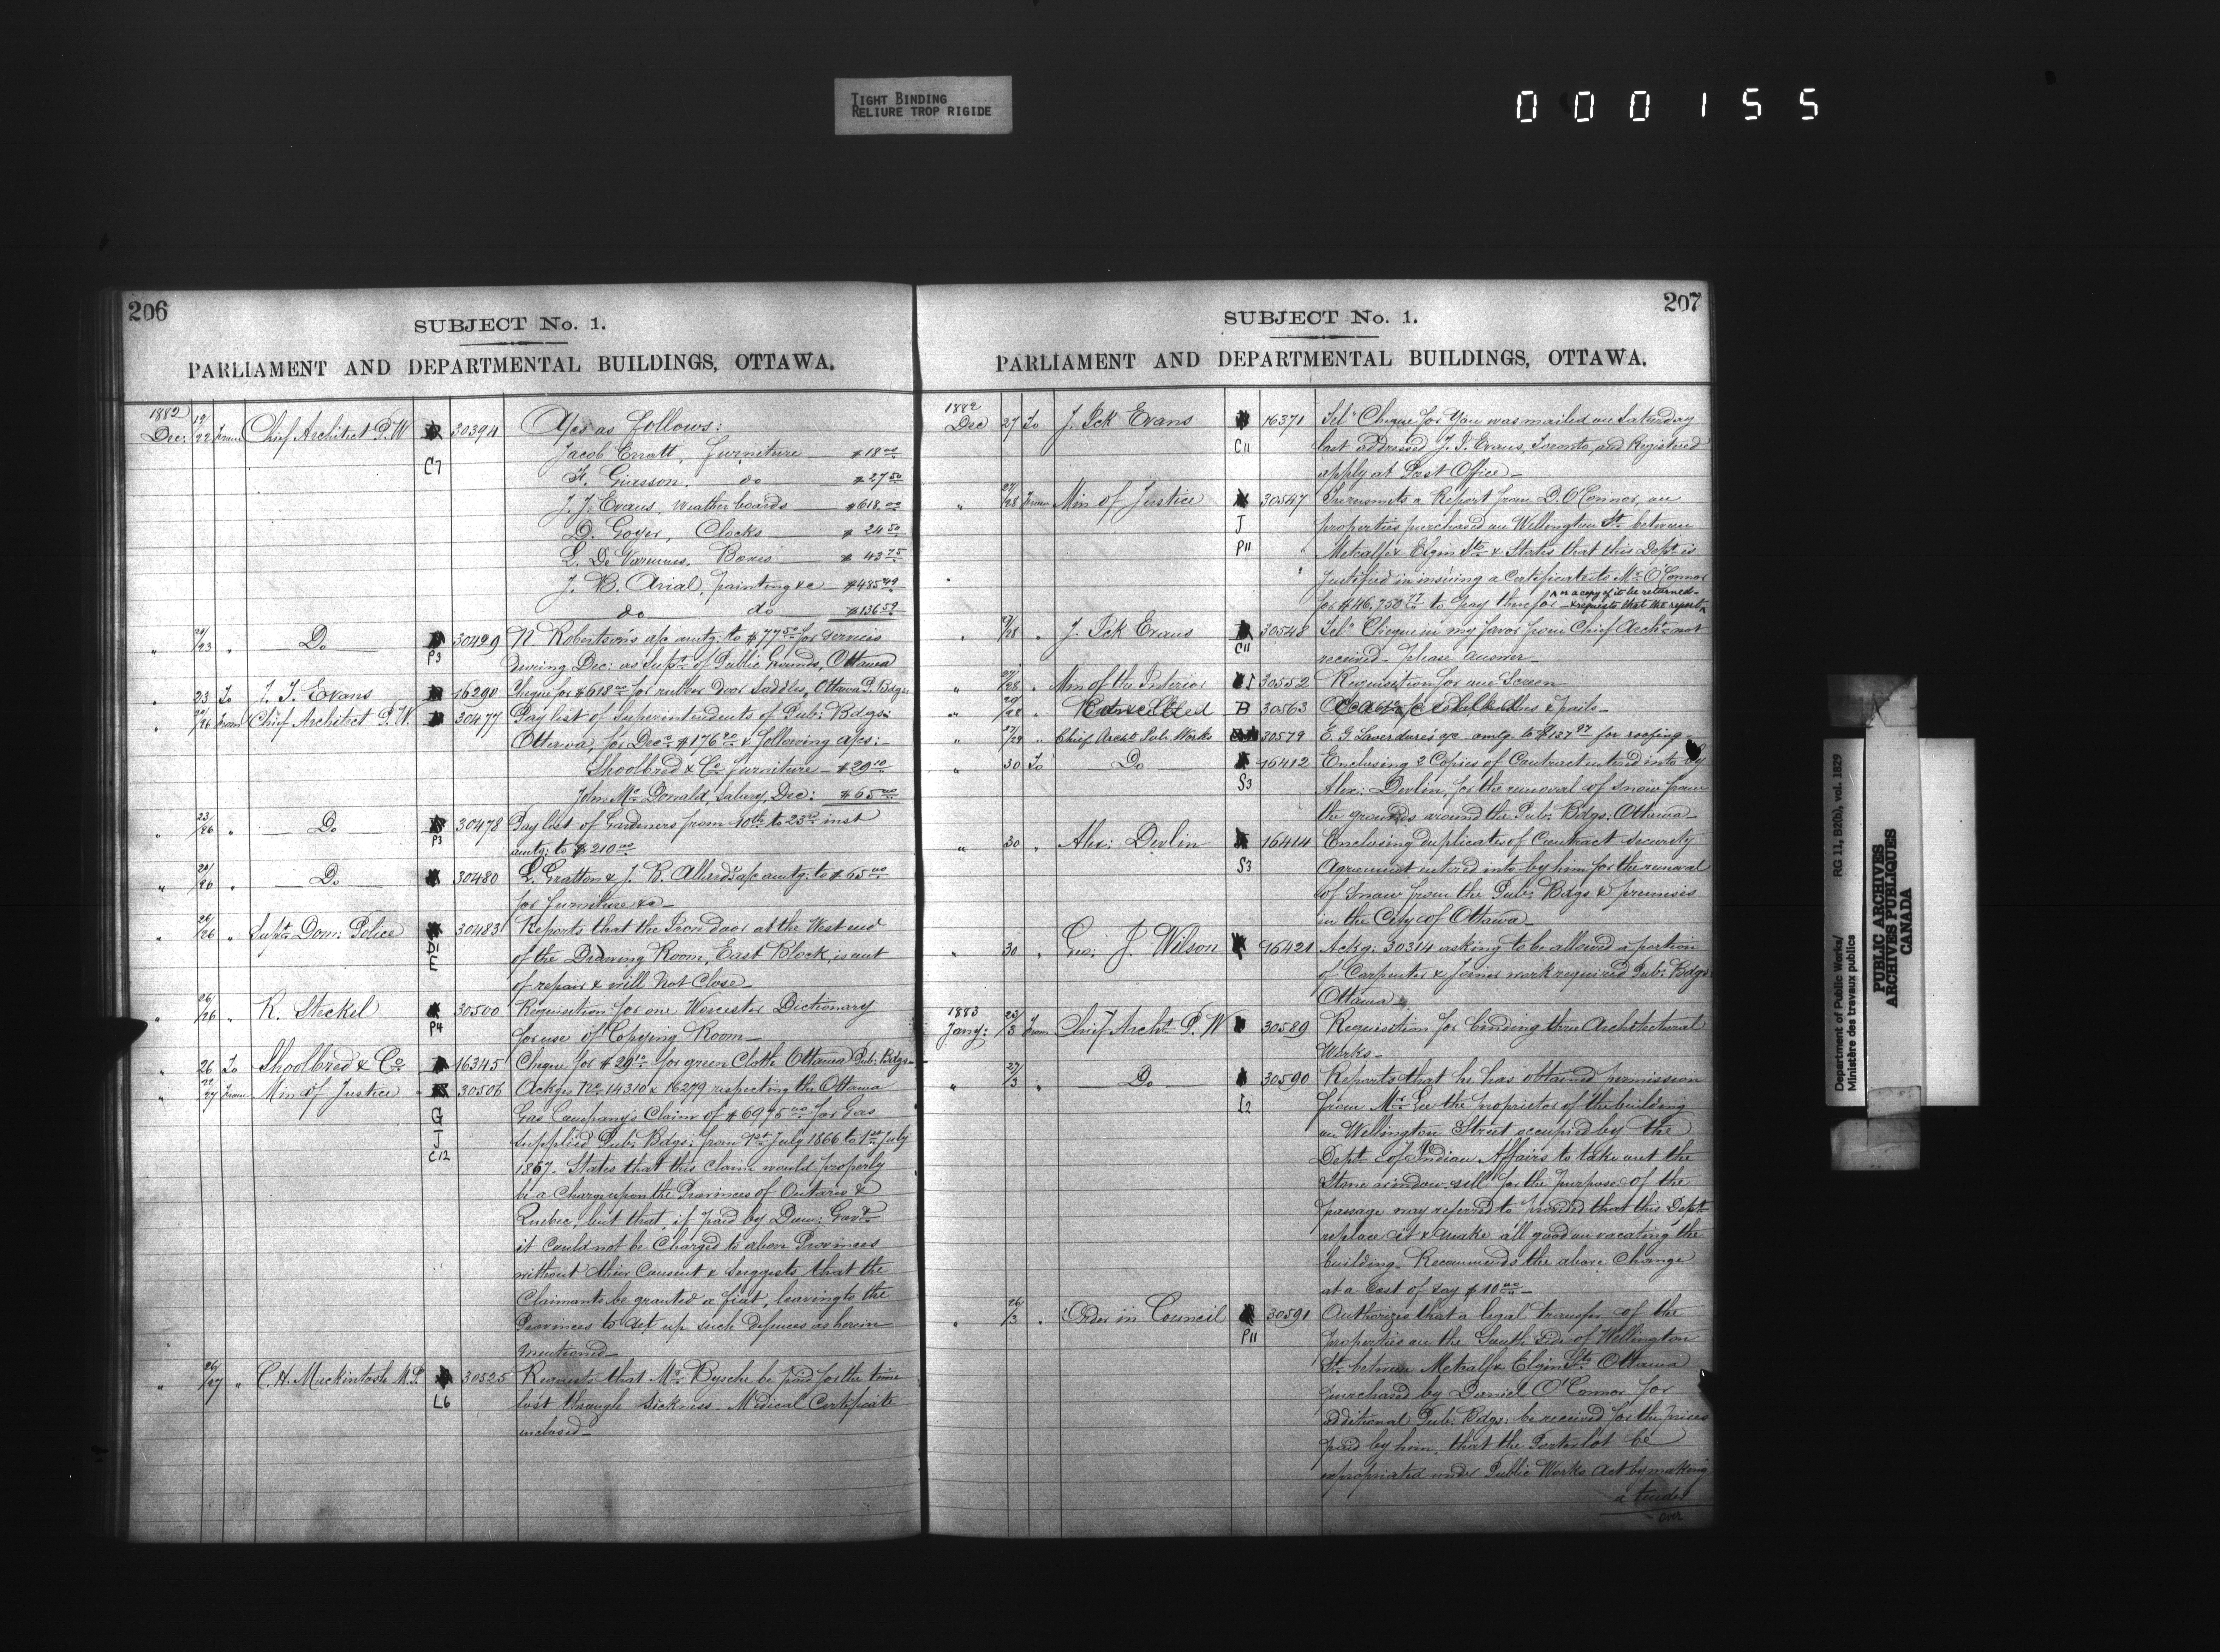 TIGHT BINDING
RELIURE TROP RIGIDE
000155
206
SUBJECT No. 1.
PARLIAMENT AND DEPARTMENTAL BUILDINGS, OTTAWA.
1882
Dec: 19/22 From Chief Architect P.W 30394 A/cs as follows:
C7 Jacob Erratt, Furniture $18.00
do $27.50
J. J. Evans, Weather boards $618.00
D. Goyer, Clocks $24.50
Boxes $43.75
J. B. Arial, painting &c $485.49
do do $136.59
" 20/23 " Do 30429 N. Robertson's a/c amtg: to $77.50 for services
P3 during Dec: as Supt of Public Grounds, Ottawa
" 23 To J. J. Evans 16290 Cheque for $618.00 for rubber door saddles, Ottawa P. Bdgs
" From Chief Architect P.W. 30477 Pay list of Superintendents of Pub: Bdgs:
Ottawa, for Decr $176.20 & following a/cs:-
Shoolbred & Co furniture $29.10
John McDonald, salary, Dec: $65.00
" 23/26 " Do 30478 Pay list of Gardeners from 10th to 23rd inst
P3 amtg: to $210.00
" " Do 30480 L. Gratton & J. B. Allard's a/c amtg: to $65.00
for furniture &c
" 26/26 " Supt Dom: Police 30483 Reports that the Iron door at the West end
D1 of the Drawing Room, East Block, is out
E of repair & will not close
" 26/26 " R. Steckel 30500 Requisition for one Worcester Dictionary
P4 for use of Copying Room
" 26 To Shoolbred & Co 16345 Cheque for $29.10 for green Cloth Ottawa Pub. Bdgs
" 22/27 From Min of Justice 30506 Ackgs No 14310 & 16279 respecting the Ottawa
G Gas Company's Claim of $6975.00 for Gas
J supplied Pub: Bdgs: from 1st July 1866 to 1st July
C12 1867. States that this claim would properly
be a charge upon the Provinces of Ontario &
Quebec, but that, if paid by Dom: Govt
it could not be charged to above Provinces
without their consent & suggests that the
Claimants be granted a fiat, leaving to the
Provinces to set up such defences as herein
mentioned
" 26/27 " C. H. Mackintosh M.P. 30525 Requests that Mr Bysche be paid for the time
L6 lost through sickness. Medical Certificate
enclosed
207
SUBJECT No. 1.
PARLIAMENT AND DEPARTMENTAL BUILDINGS, OTTAWA.
1882
Dec 27 To J. Pck Evans 16371 Teln Cheque for you was mailed on Saturday
C11 last addressed J. J. Evans, Toronto, and Registered
apply at Post Office
" 27/28 From Min of Justice 30547 Transmits a Report from D. O'Connor, on
J properties purchased on Wellington St. between
P11 Metcalfe & Elgin Sts & States that this Dept. is
justified in issuing a Certificate to Mr O'Connor
for $46,750.77 to pay therefor & requests that the report or a copy of it be returned
" 27/28 " J. Pck Evans 30548 Teln Cheque in my favor from Chief Archt not
C11 received. Please answer
" 27/28 " Min of the Interior 30552 Requisition for one Screen
" " Cancelled B 30563
" 27/29 " Chief Archt Pub. Works 30579 E. G. Laverdure's a/c amtg. to $137.97 for roofing
" 30 To Do 16412 Enclosing 2 Copies of Contract entered into by
S3 Alex: Devlin, for the removal of snow from
the grounds around the Pub: Bdgs: Ottawa
" 30 " Alex: Devlin 16414 Enclosing duplicates of Contract security
S3 Agreement entered into by him for the removal
of snow from the Pub: Bdgs & premises
in the City of Ottawa
" 30 " Geo: J. Wilson 16421 Ackg: 30314 asking to be allowed a portion
of Carpenter & Joiner work required Pub: Bdgs
Ottawa
1883
Jany: 23/3 From Chief Archt P.W 30589 Requisition for binding three Architectural
Works
" 27/3 " Do 30590 Reports that he has obtained permission
I2 from Mr Lee the proprietor of the building
on Wellington Street occupied by the
Dept of Indian Affairs to take out the
Stone window sill for the purpose of the
passage way referred to provided that this Dept
replace it & make all good on vacating the
building. Recommends the above change
at a Cost of say $10.00
" 26/3 " Order in Council 30591 Authorizes that a legal transfer of the
P11 properties on the South side of Wellington
St. between Metcalfe & Elgin Sts Ottawa
purchased by Daniel O'Connor for
additional Pub: Bdgs: be received for the prices
paid by him, that the Porter lot be
expropriated under Public Works Act by making
a tender
over
Department of Public Works/
Ministère des travaux publics
RG 11, B2(b), vol. 1829
PUBLIC ARCHIVES
ARCHIVES PUBLIQUES
CANADA